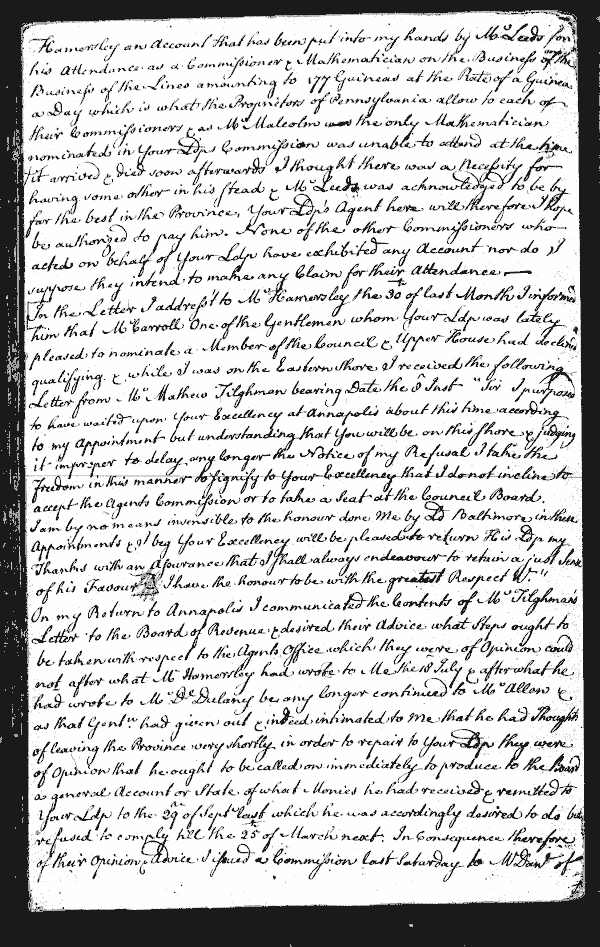 Hamersley an Account that has been put into my hands by Mr. Leeds for
his Attendance as a Commissioner & Mathematician on the Business of the
Business of the Lines amounting to 177 Guineas at the Rate of a Guinea
a Day which is what the Proprietors of Pennsylvania allow to each of
their Commissioners, & as Mr. Malcolm was the only Mathematician
nominated in Your Ldps Commission was unable to attend at the time
it arrived & died soon afterwards I thought there was a Necessity for
having some other in his stead & Mr. Leeds was acknowledged to be by
far the best in the Province, Your Ldp's Agent here will therefore I hope
be authorized to pay him. None of the other Commissioners who
acted on behalf of Your Ldp have exhibited any Account nor do I
suppose they intend to make any Claim for their Attendance —
In the Letter I address't to Mr. Hamersley the 30th of last Month I inform'd
him that Mr. Carroll One of the Gentlemen whom Your Ldp was lately
pleased to nominate a Member of the Council & Upper House had declined
qualifying & while I was on the Eastern Shore I received the following
Letter from Mr. Mathew Tilghman bearing Date the 8 Inst "Sir I purposed
to have waited upon Your Excellency at Annapolis about this time according
to my Appointment but understanding that You will be on this Shore & judging
it improper to delay any longer the Notice of my Refusal I take the
Freedom in this manner to signify to Your Excellency that I do not incline to
accept the Agents Commission or to take a Seat at the Council Board.
I am by no means insensible to the honour done Me by Ld Baltimore in these
Appointments & I beg Your Excellency will be pleased to return His Ldp my
Thanks with an Assurance that I shall always endeavour to retain a just Sense
of his Favour I have the honour to be with the greatest Respect &c."
On my Return to Annapolis I communicated the Contents of Mr. Tilghman's
Letter to the Board of Revenue & desired their Advice what Steps ought to
be taken with respect to the Agents Office which they were of Opinion could
not after what Mr. Hamersley had wrote to Me the 18 July & after what he
had wrote to Mr. Dl. Dulany be any longer continued to Mr. Allen &
as that Gentn. had given out & indeed intimated to me that he had Thoughts
of leaving the Province very shortly in order to repair to Your Ldp they were
of Opinion that he ought to be called on immediately to produce to the Board
a general Account or State of what Monies he had received & remitted to
Your Ldp to the 29th of Septr. last which he was accordingly desired to do but
refused to comply till the 25th of March next. In Consequence therefore
of their Opinion & Advice I issued a Commission last Saturday to Mr. Danl. of